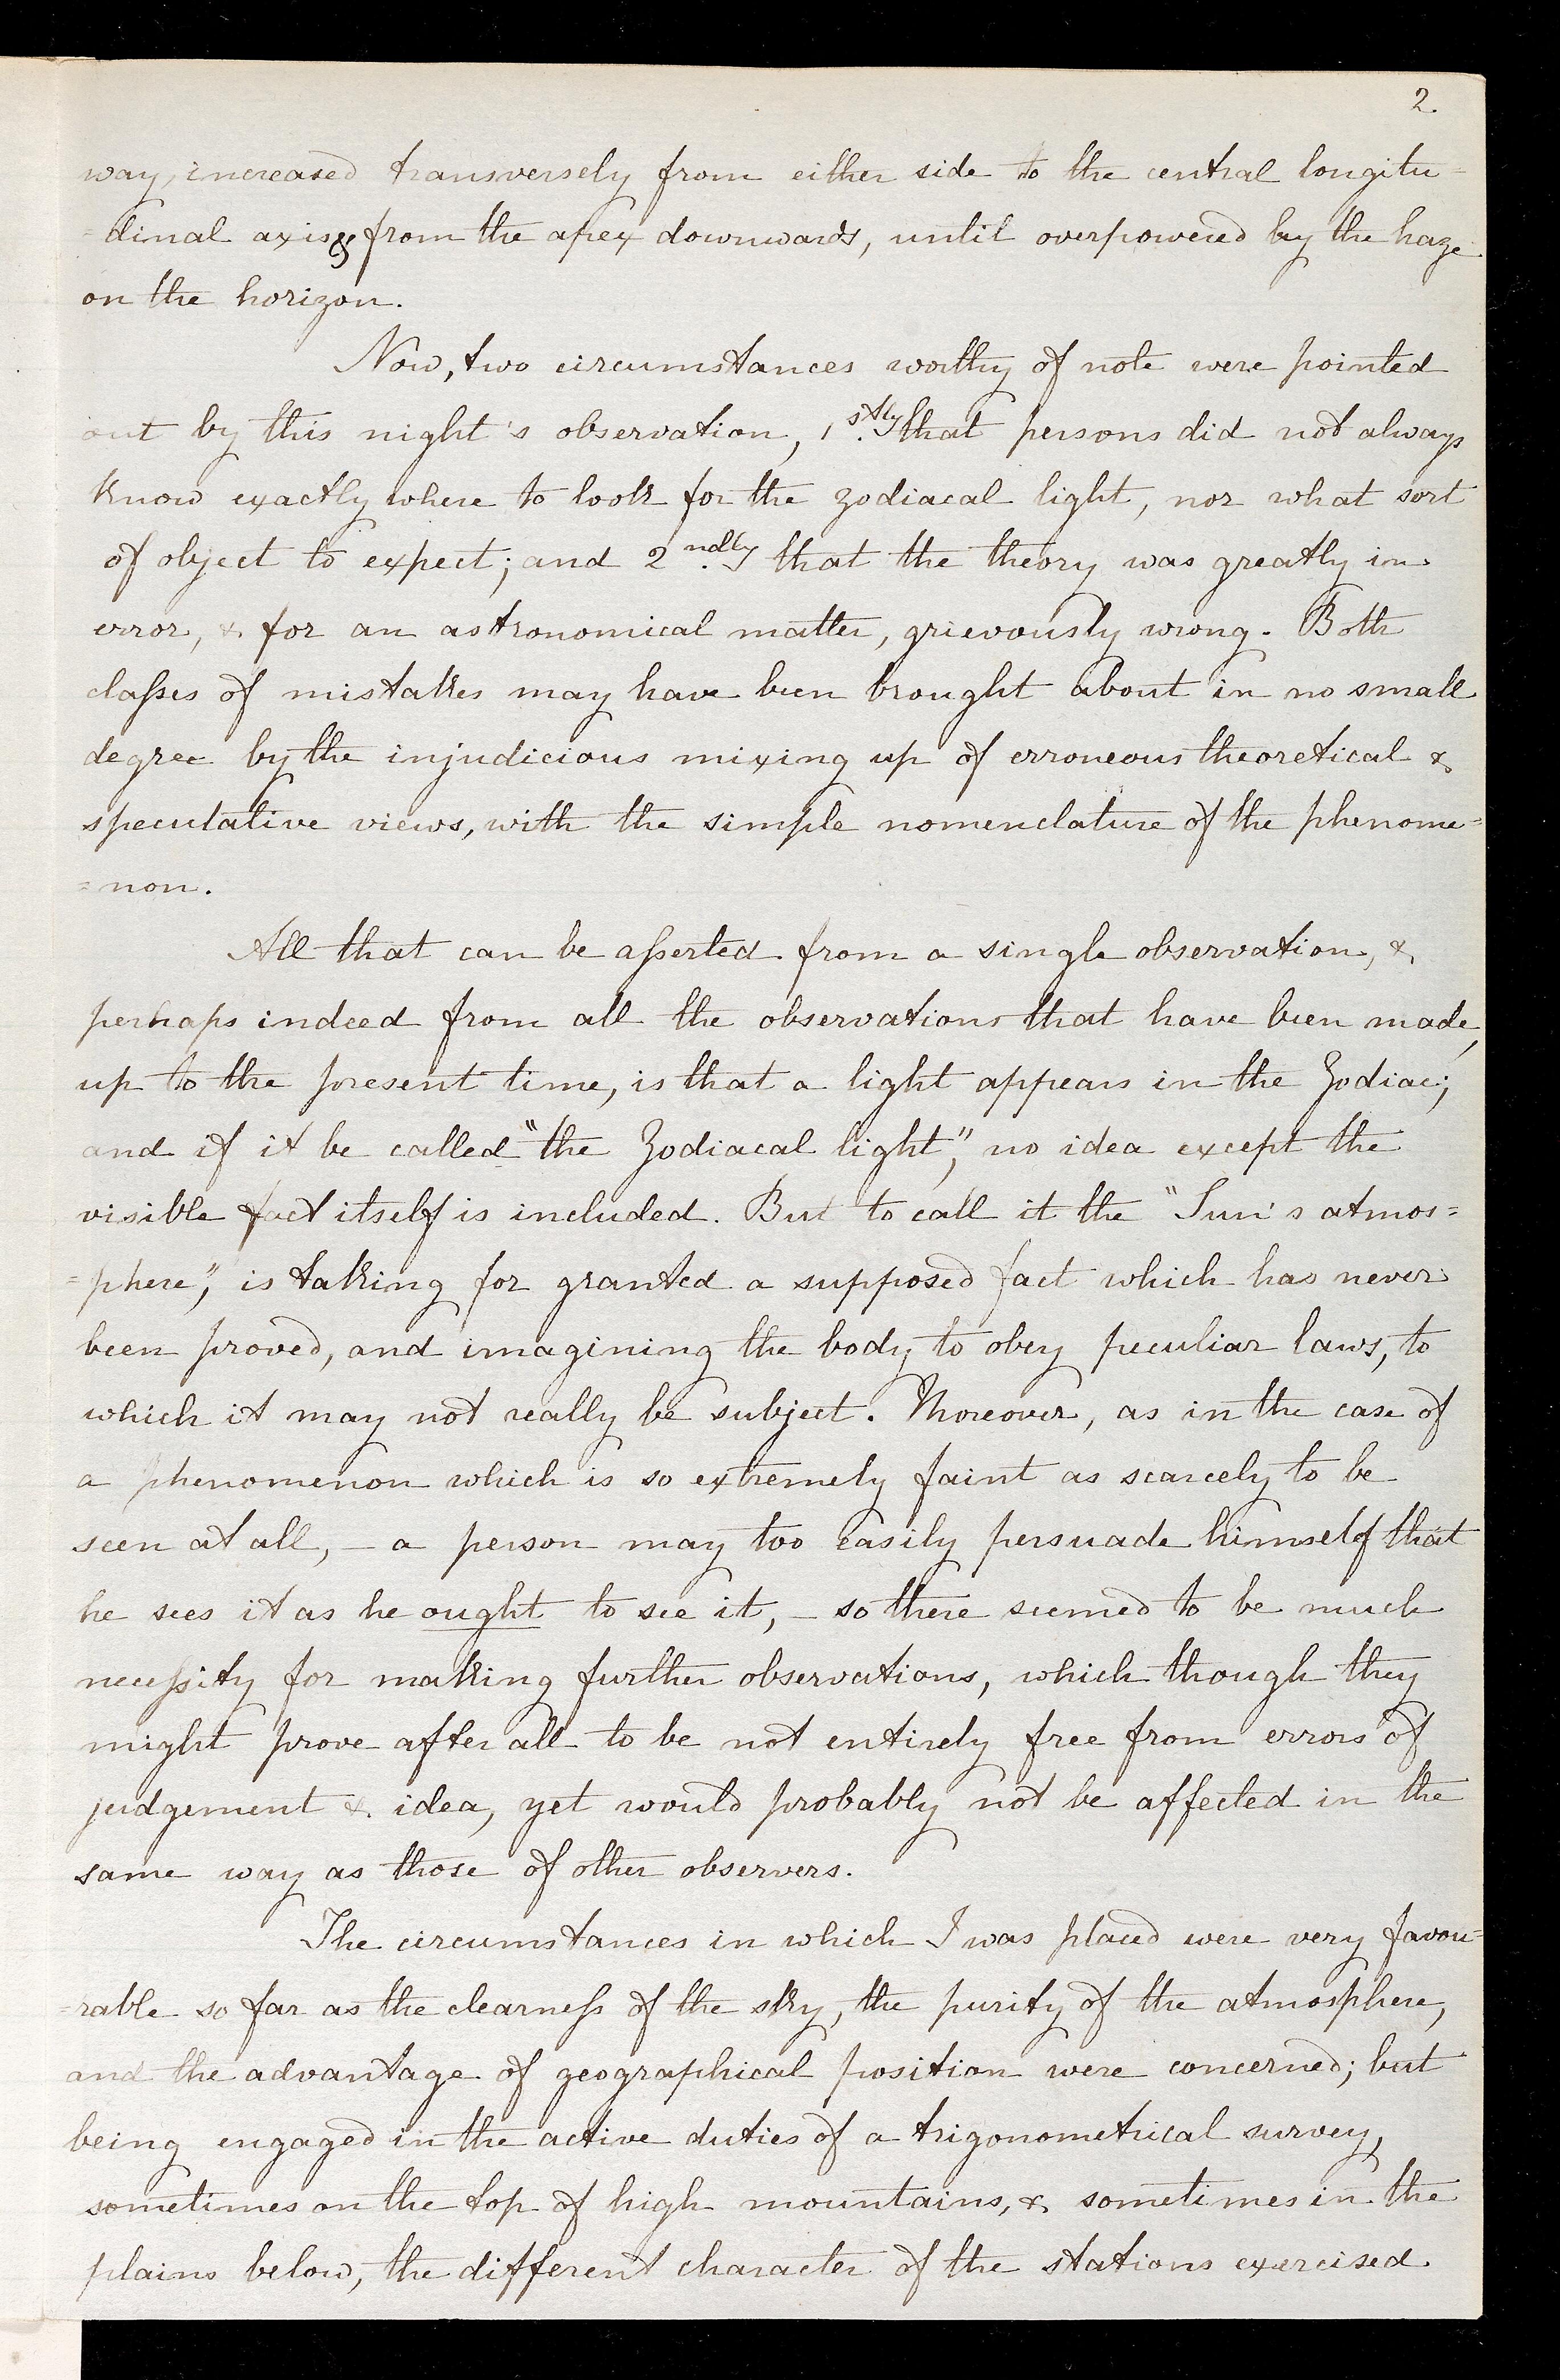 2.
way, increased transversely from either side to the central longitu=
=dinal axis & from the apex downwards, until overpowered by the haze
on the horizon.
Now, two circumstances worthy of note were pointed
out by this night's observation, 1stly that persons did not always
know exactly where to look for the zodiacal light, nor what sort
of object to expect; and 2ndly that the theory was greatly in
error, & for an astronomical matter, grievously wrong. Both
claſses of mistakes may have been brought about in no small
degree by the injudicious mixing up of erroneous theoretical &
speculative views, with the simple nomenclature of the phenome=
=non.
All that can be aſserted from a single observation, &
perhaps indeed from all the observations that have been made,
up to the present time, is that a light appears in the Zodiac;
and if it be called "the Zodiacal light", no idea except the
visible fact itself is included. But to call it the "Sun's atmos=
=phere", is taking for granted a supposed fact which has never
been proved, and imagining the body to obey peculiar laws, to
which it may not really be subject. Moreover, as in the case of
a phenomenon which is so extremely faint as scarcely to be
seen at all, – a person may too easily persuade himself that
he sees it as he ought to see it, – so there seemed to be much
neceſsity for making further observations, which though they
might prove after all to be not entirely free from errors of
judgement & idea, yet would probably not be affected in the
same way as those of other observers.
The circumstances in which I was placed were very favou=
=rable so far as the clearneſs of the sky, the purity of the atmosphere,
and the advantage of geographical position were concerned; but
being engaged in the active duties of a trigonometrical survey,
sometimes on the top of high mountains, & sometimes in the
plains below, the different character of the stations exercised